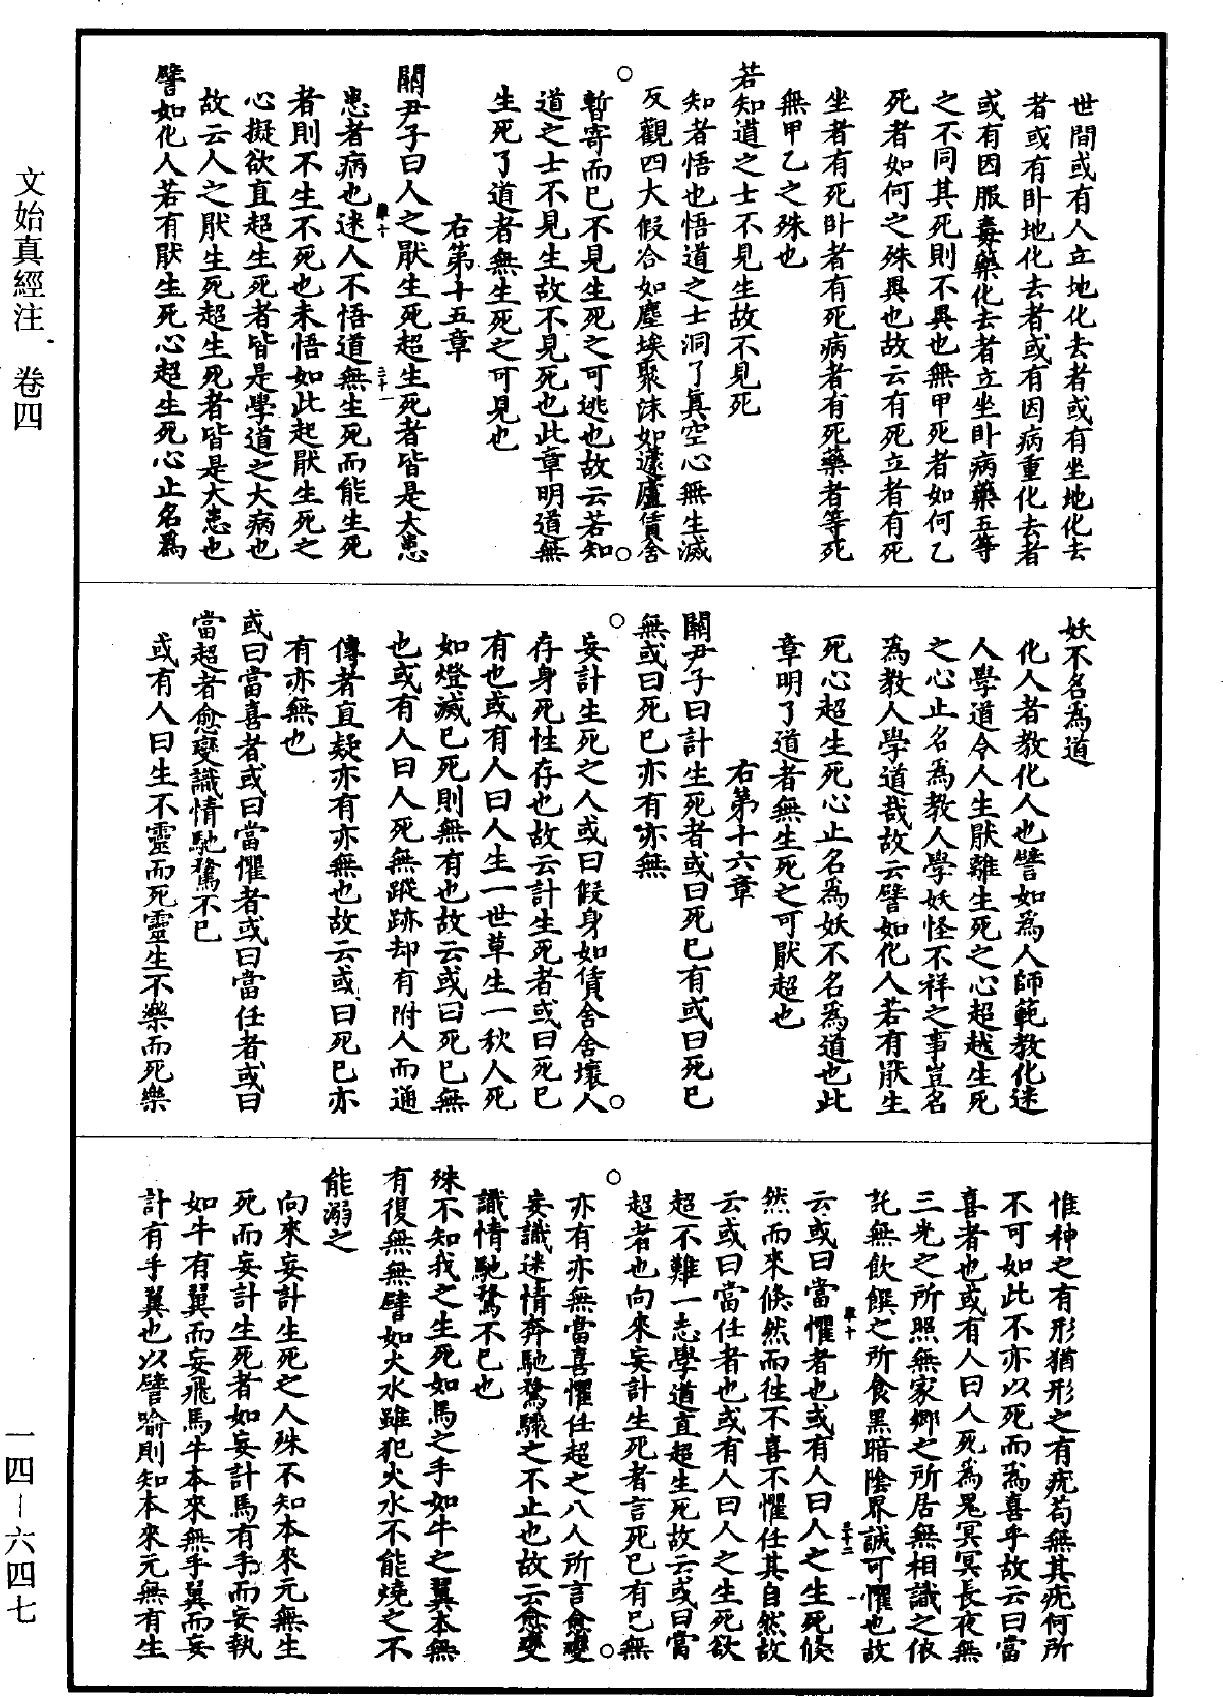 文始真經注 卷四
世間或有人立地化去者或有坐地化去
者或有卧地化去者或有因病重化去者
或有因服毒藥化去者立坐卧病藥五等
之不同其死則不異也無甲死者如何乙
死者如何之殊異也故云有死立者有死
坐者有死卧者有死病者有死藥者等死
無甲乙之殊也
若知道之士不見生故不見死
知者悟也悟道之士洞了真空心無生滅
反觀四大假合如塵埃聚沫如蘧廬賃舍
暫寄而已不見生死之可逃也故云若知
道之士不見生故不見死也此章明道無
生死了道者無生死之可見也
右第十五章
關尹子曰人之厭生死超生死者皆是大患
患者病也迷人不悟道無生死而能生死
者則不生不死也未悟如此起厭生死之
心擬欲直超生死者皆是學道之大病也
故云人之厭生死超生死者皆是大患也
譬如化人若有厭生死心超生死心止名爲
妖不名爲道
化人者教化人也譬如爲人師範教化迷
人學道令人生厭離生死之心超越生死
之心止名爲教人學妖怪不祥之事豈名
爲教人學道哉故云譬如化人若有厭生
死心超生死心止名爲妖不名爲道也此
章明了道者無生死之可厭超也
右第十六章
關尹子曰計生死者或曰死已有或曰死已
無或曰死已亦有亦無
妄計生死之人或曰假身如賃舍舍壞人
存身死性存也故云計生死者或曰死已
有也或有人曰人生一世草生一秋人死
如燈滅已死則無有也故云或曰死已無
也或有人曰人死無蹤跡却有附人而通
傳者直疑亦有亦無也故云或曰死已亦
有亦無也
或曰當喜者或曰當懼者或曰當任者或曰
當超者愈變識情馳騖不已
或有人曰生不靈而死靈生不樂而死樂
惟神之有形猶形之有疣苟無其疣何所
不可如此不亦以死而爲喜乎故云曰當
喜者也或有人曰人死爲鬼冥冥長夜無
三光之所照無家鄉之所居無相識之依
託無飲饌之所食黑暗陰界誠可懼也故
云或曰當懼者也或有人曰人之生死倏
然而來倏然而往不喜不懼任其自然故
云或曰當任者也或有人曰人之生死欲
超不難一志學道直超生死故云或曰當
超者也向來妄計生死者言死已有已無
亦有亦無當喜懼任超之八人所言愈變
妄識迷情奔馳騖驟之不止也故云愈變
識情馳騖不已也
殊不知我之生死如馬之手如牛之翼本無
有復無無譬如火水雖犯火水不能燒之不
能溺之
向來妄計生死之人殊不知本來元無生
死而妄計生死者如妄計馬有手而妄執
如牛有翼而妄飛馬牛本來無手翼而妄
計有手翼也以譬喻則知本來元無有生
一四－六四七